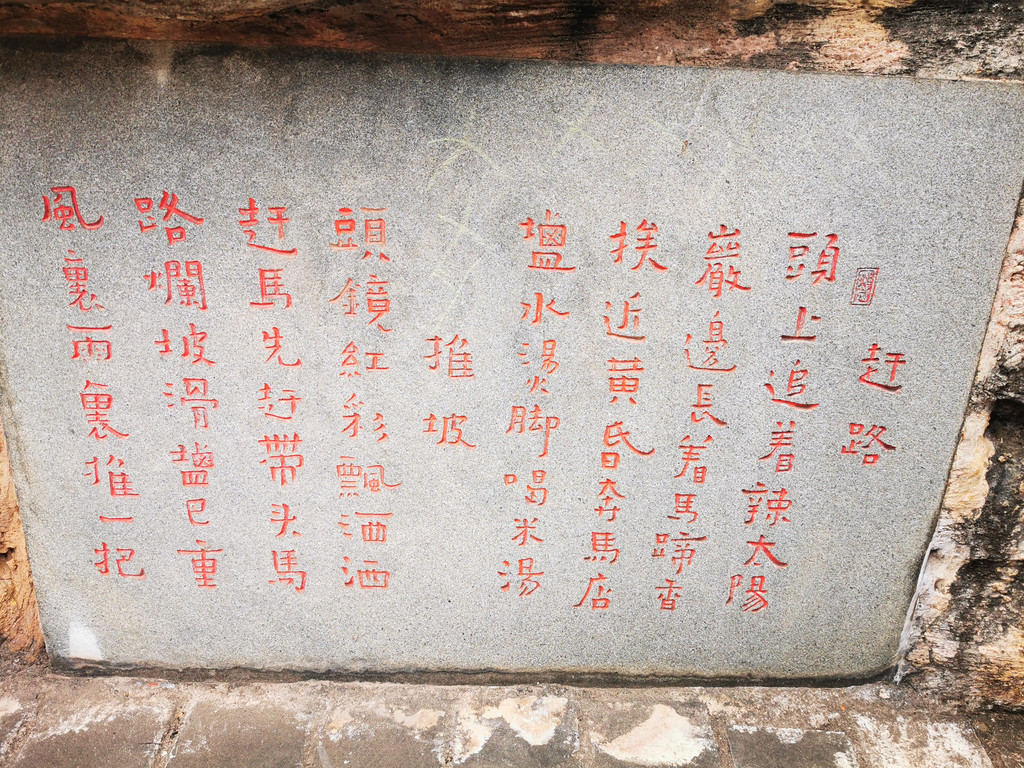 赶路
頭上追着辣太陽
巖邊長着馬蹄香
挨近黄昏奔馬店
鹽水湯火脚喝米湯
推坡
頭鏡紅彩飄洒洒
赶馬先赶帶头馬
路爛坡滑鹽巴重
風裏雨裏推一把